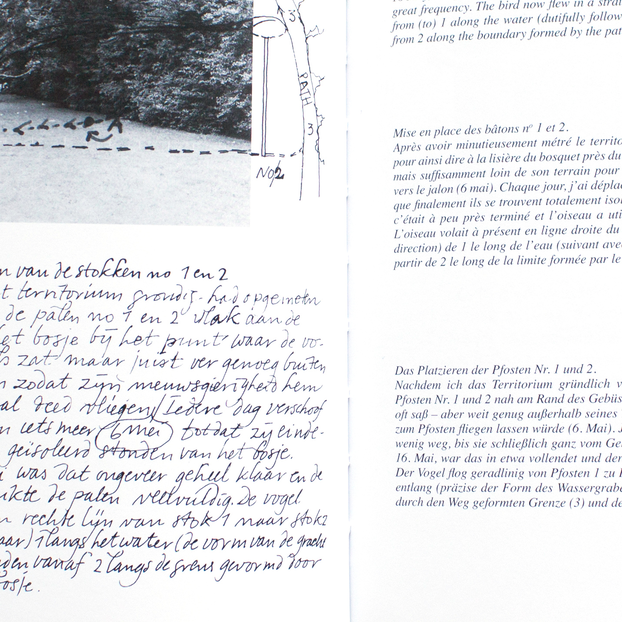 PATH
3
No 2
n van de stokken no 1 en 2
t territorium grondig had opgemeten
de palen no 1 en 2 vlak aan de
et bosje bij het punt waar de vo-
s zat maar juist ver genoeg buiten
n zodat zijn nieuwsgierigheid hem
al deed vliegen Iedere dag verschoof
n iets meer (6 mei) totdat zij einde-
geisoleerd stonden van het bosje.
i was dat ongeveer geheel klaar en de
ikte de palen veelvuldig. De vogel
n rechte lijn van stok 1 naar stok 2
aar) 1 langs het water (de vorm van de gracht
den vanaf 2 langs de grens gevormd door
osje.
great frequency. The bird now flew in a stra
from (to) 1 along the water (dutifully follow
from 2 along the boundary formed by the pat
Mise en place des bâtons nº 1 et 2.
Après avoir minutieusement métré le territo
pour ainsi dire à la lisière du bosquet près du
mais suffisamment loin de son terrain pour
vers le jalon (6 mai). Chaque jour, j'ai dépla
que finalement ils se trouvent totalement iso
c'était à peu près terminé et l'oiseau a uti
L'oiseau volait à présent en ligne droite du
direction) de 1 le long de l'eau (suivant ave
partir de 2 le long de la limite formée par le
Das Platzieren der Pfosten Nr. 1 und 2.
Nachdem ich das Territorium gründlich v
Pfosten Nr. 1 und 2 nah am Rand des Gebüs
oft saß – aber weit genug außerhalb seines
zum Pfosten fliegen lassen würde (6. Mai). J
wenig weg, bis sie schließlich ganz vom Ge
16. Mai, war das in etwa vollendet und der
Der Vogel flog geradlinig von Pfosten 1 zu
entlang (präzise der Form des Wassergrabe
durch den Weg geformten Grenze (3) und de